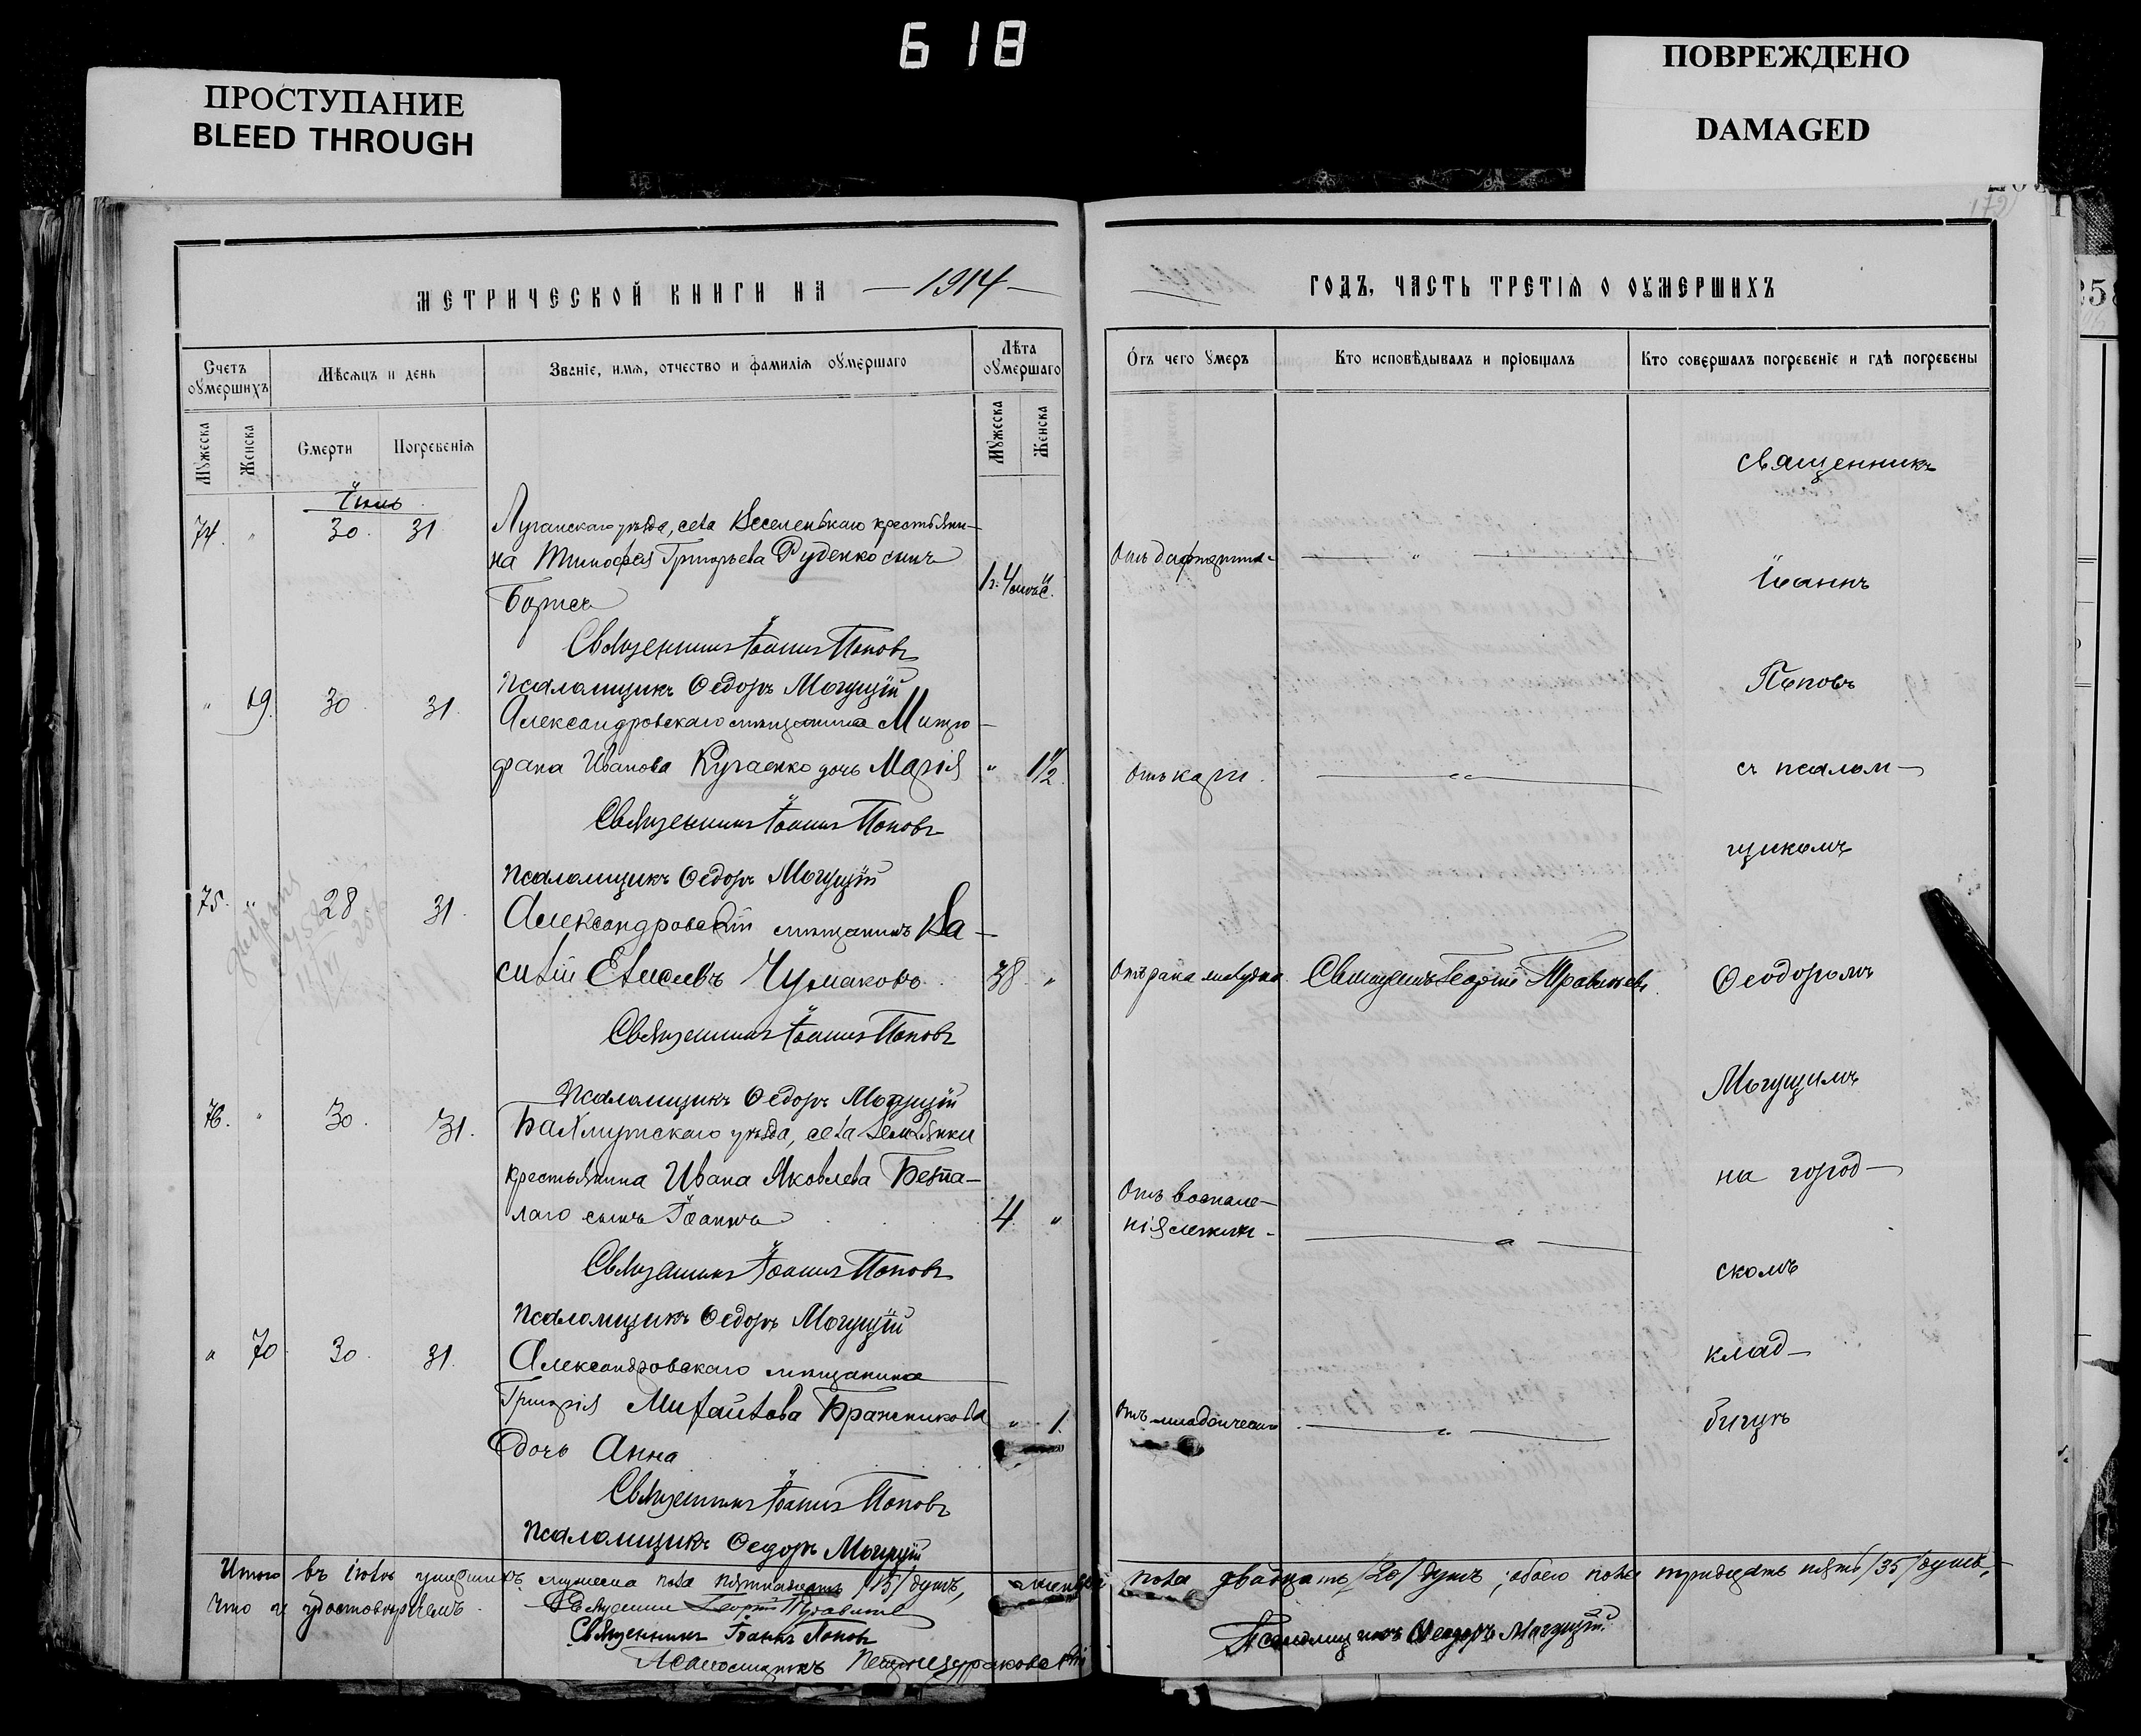 618
ПРОСТУПАНИЕ
BLEED THROUGH
ПОВРЕЖДЕНО
DAMAGED
179
МЕТРИЧЕСКОЙ КНИГИ НА — 1914 —
Счетъ оумершихъ
Мѣсяцъ и день
Званіе, имя, отчество и фамилія оумершаго
Лѣта оумершаго
Мужеска
Женска
Смерти
Погребенія
Мужеска
Женска
74. " 30. 31
Луганскаго уѣзда, села Веселенькаго крестьяни-
на Тимофея Григорьева Руденко сынъ
Борисъ
1 г. 4 мѣс.
Священникъ Іоаннъ Поповъ
Псаломщикъ Ѳедоръ Могущій
" 69. 30. 31.
Александровскаго мѣщанина Митро-
фана Иванова Кугаенко дочь Марія " 1½.
Священникъ Іоаннъ Поповъ
Псаломщикъ Ѳедоръ Могущій
75. " 28 31.
Александровскій мѣщанинъ Ва-
силій Елисеевъ Чумаковъ. 38. "
Священникъ Іоаннъ Поповъ
Псаломщикъ Ѳедоръ Могущій
76. " 30. 31.
Бахмутскаго уѣзда, села Землянки
крестьянина Ивана Яковлева Безпа-
лаго сынъ Іоаннъ 4. "
Священникъ Іоаннъ Поповъ
Псаломщикъ Ѳедоръ Могущій
" 70 30. 31.
Александровскаго мѣщанина
Григорія Михайлова Бражникова " 1.
дочь Анна
Священникъ Іоаннъ Поповъ
Псаломщикъ Ѳедоръ Могущій
Итого въ іюлѣ умершихъ мужеска пола пятнадцать /15/ душъ, женска
Что и удостовѣряемъ.
Священникъ Георгій
Священникъ Іоаннъ Поповъ
Псаломщикъ
ГОДЪ, ЧАСТЬ ТРЕТІЯ О ОУМЕРШИХЪ
Отъ чего умеръ
Кто исповѣдывалъ и пріобщалъ
Кто совершалъ погребеніе и гдѣ погребены
Священникъ
Отъ дифтерита. — " —
Іоаннъ
Поповъ
Отъ кори.
съ псалом-
щикомъ
Отъ рака желудка. Священникъ Георгій
Ѳеодоромъ
Могущимъ
на город-
Отъ воспале-
нія легкихъ.
скомъ
клад-
Отъ младенческ.
бищѣ
пола двадцать /20/ душъ; обоего пола тридцать пять /35/ душъ,
Псаломщикъ Ѳеодоръ Могущій.